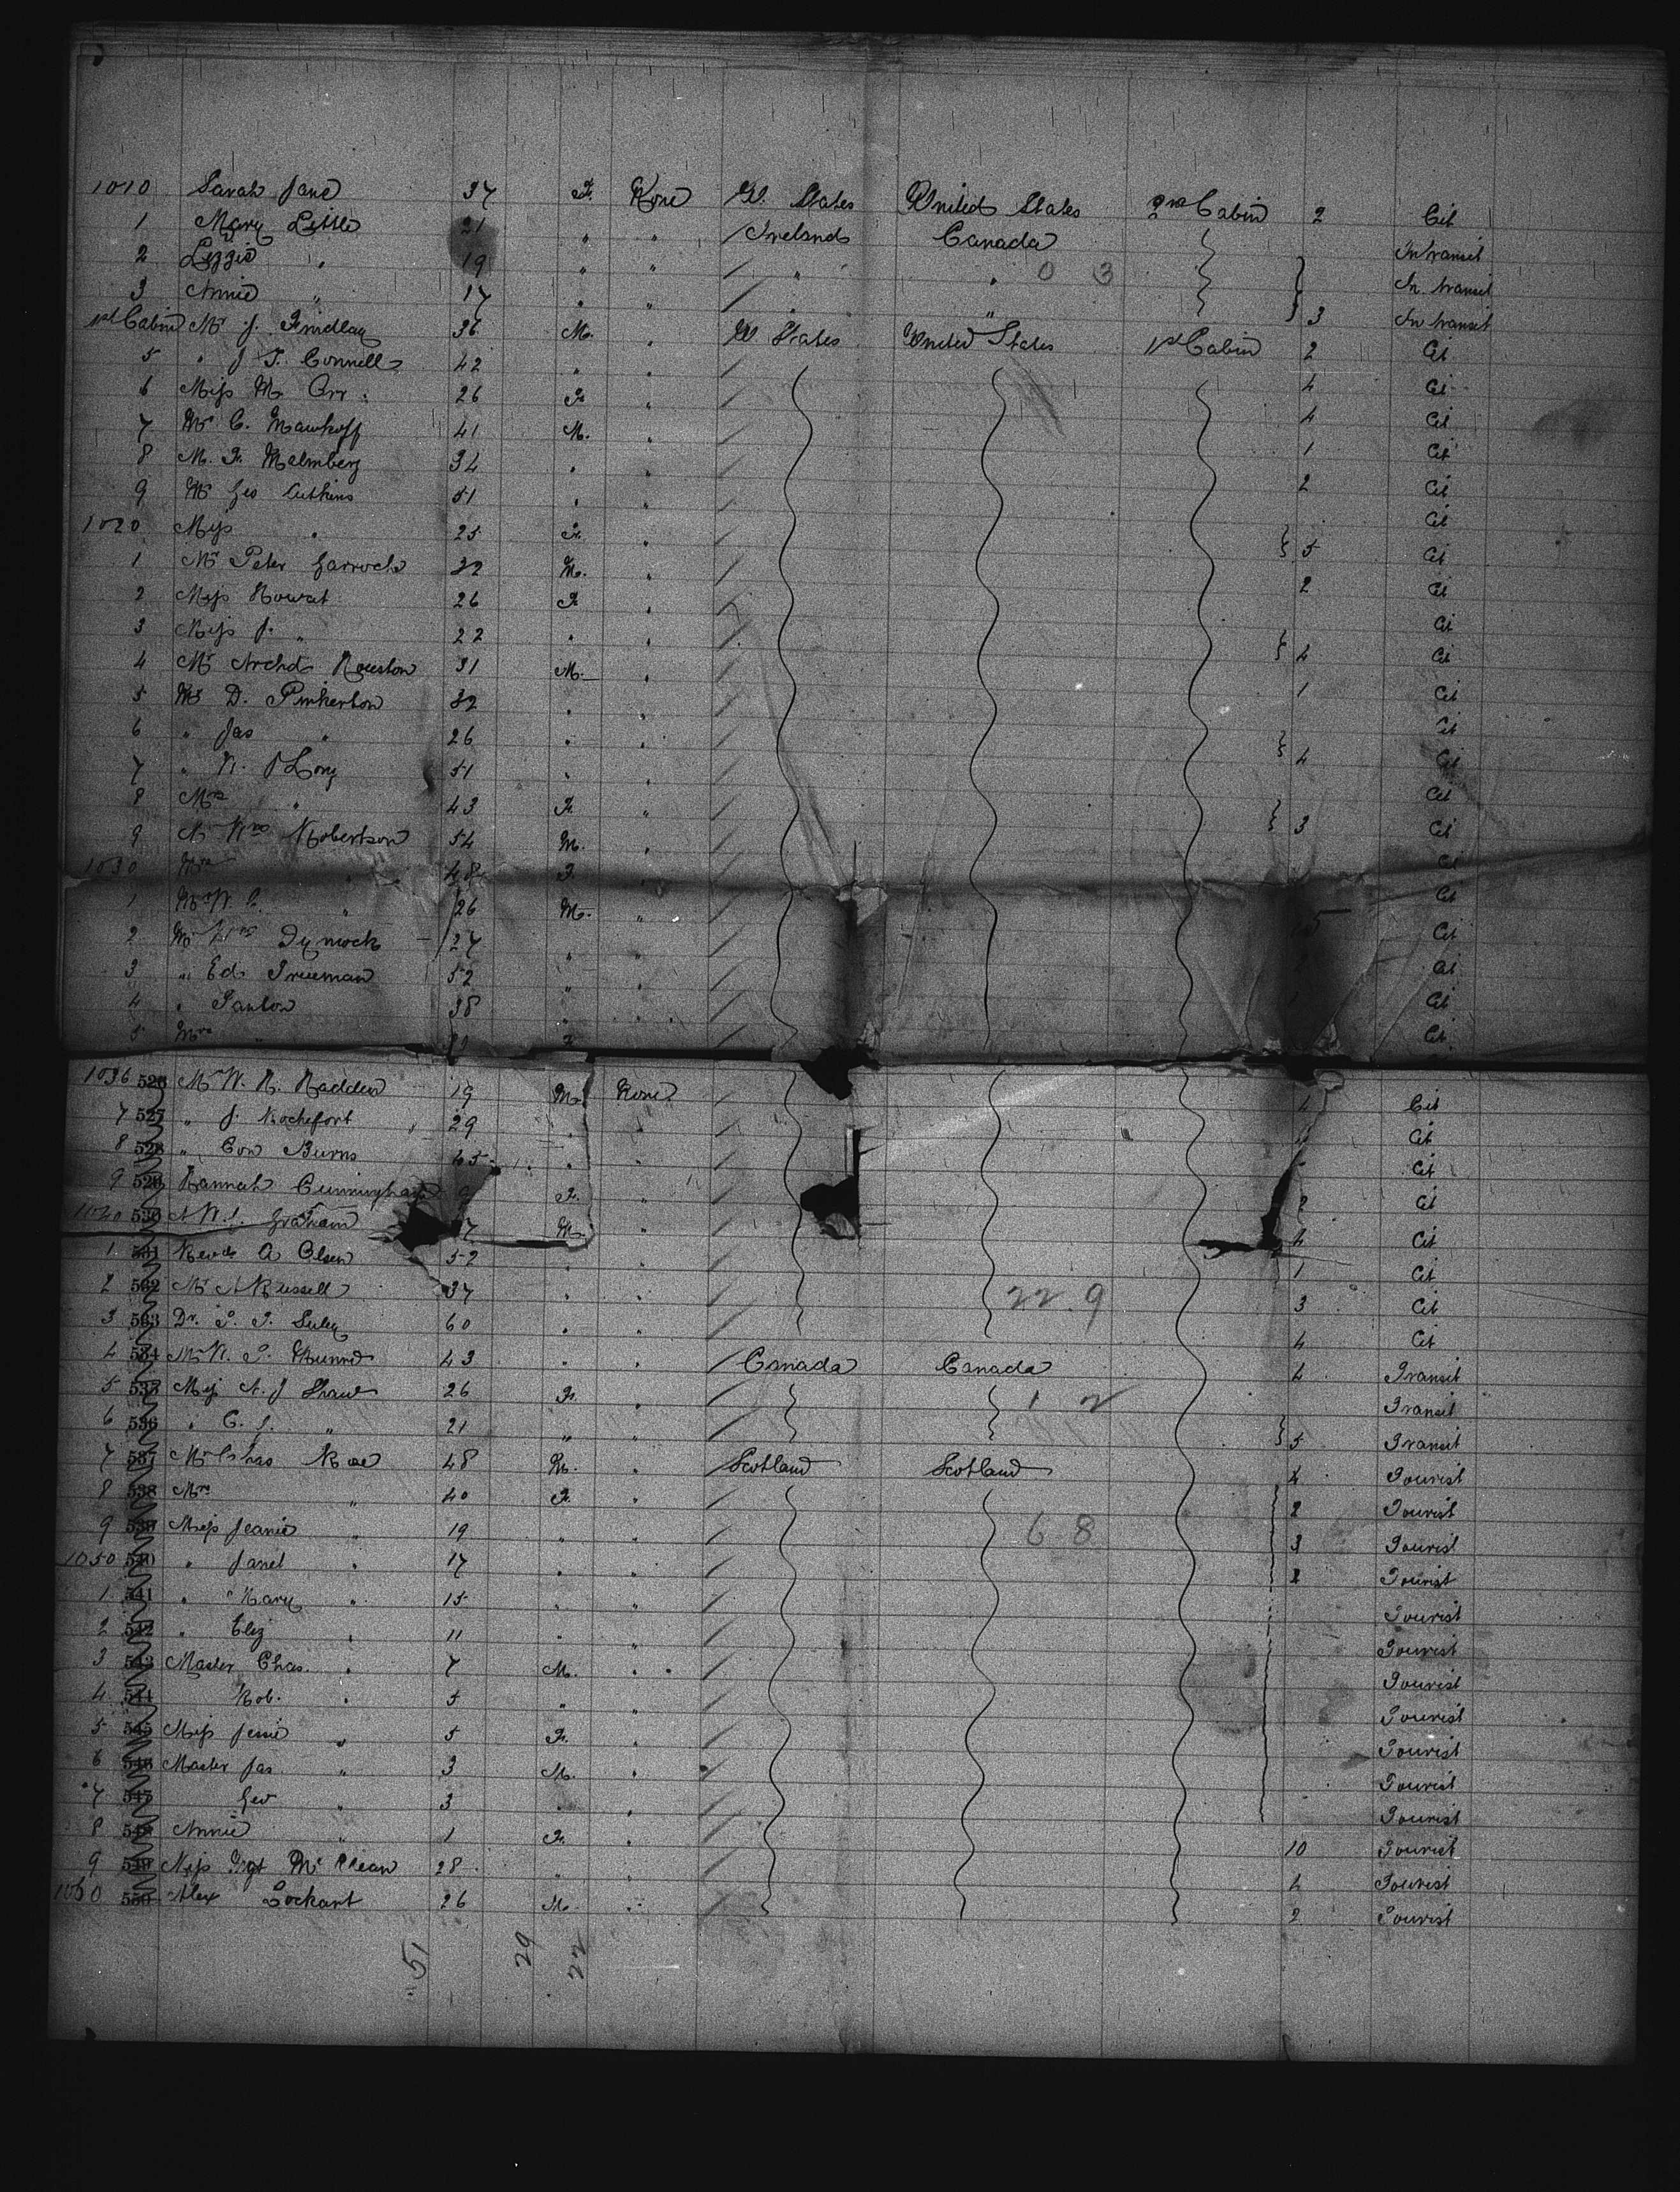 1010 Sarah Jane 37 F. None U. States United States 2nd Cabin 2 Cit
1 Mary Little 21 " " Ireland Canada In transit
2 Lizzie " 19 " " " " 0 3 In transit
3 Annie " 17 " " " " 3 In transit
1st Cabin Mr J. Findlay 36 M. " U. States United States 1st Cabin 2 Cit
5 " J T. Connell 42 " " 4 Cit
6 Miss M Orr 26 F. " 4 Cit
7 Mr C. Mawhoff 41 M. " 1 Cit
8 M. F. Malmberg 34 " " 2 Cit
9 Mr Geo Cuthins 51 " " Cit
1020 Miss " 25 F. " 5 Cit
1 Mr Peter Garroch 32 M. " 2 Cit
2 Miss Howat 26 F. " Cit
3 Miss J. " 22 " " 4 Cit
4 Mr Archd Rouston 31 M. " 1 Cit
5 Mr D. Pinkerton 32 " " Cit
6 " Jas " 26 " " 4 Cit
7 " Long 51 " " Cit
8 Mrs " 43 F. " 3 Cit
9 Mr Wm Robertson 54 M. " Cit
1030 Mrs " 48 F. " Cit
1 Mr W " 26 M. " 5 Cit
2 Mr Wm Dymock 27 " " Cit
3 " Ed. Frueman 52 " " Cit
4 " Panlow 38 " " Cit
5 Mrs F.
1036 526 Mr W. H. Hadden 19 M. None 4 Cit
7 527 " J. Rochefort 29 " " Cit
8 528 " Con Burns 45 " " Cit
9 529 Hannah Cunningham F. " 2 Cit
1040 530 Graham M. 4 Cit
1 531 Revd A Olsen 52 " " 1 Cit
2 532 Mr A Russell 37 " " 22 9 3 Cit
3 533 Dr. 60 " " 4 Cit
4 534 Mr 43 " " Canada Canada 4 Transit
5 535 Miss A. J Shaw 26 F. " 1 2 Transit
6 536 " C. J. " 21 " " 5 Transit
7 537 Mr Chas Rae 48 M. " Scotland Scotland 4 Tourist
8 538 Mrs " 40 F. " 2 Tourist
9 539 Miss Jeanie " 19 " " 6 8 3 Tourist
1050 540 " Janet " 17 " " 2 Tourist
1 541 " Mary " 15 " " Tourist
2 542 " Eliz " 11 " " Tourist
3 543 Master Chas. " 7 M. " Tourist
4 544 Rob. " 5 " " Tourist
5 545 Miss Jessie " 5 F. " Tourist
6 546 Master Jas " 3 M. " Tourist
7 547 Geo " 3 " " Tourist
8 548 Annie " 1 F. " 10 Tourist
9 549 Miss Mgt McClean 28 " " 4 Tourist
1060 550 Alex Lockart 26 M. " 2 Tourist
51 29 22